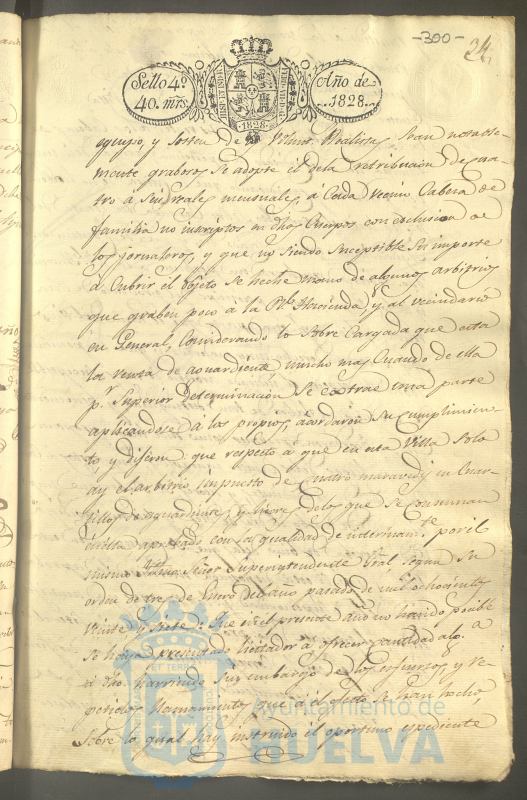 -300-
24
Sello 4º
40. mrs.
Año de
1828.
1828
equipo, y sosten de Volunt. Realistas, sean notable-
mente grabosos se adopte el de la retribucion de cua-
tro á seis reales mensuales, a cada vecino Cabeza de
familia no inscriptos en dhos Cuerpos con exclusion de
los jornaleros, y que no siendo suceptible su importe
á cubrir el objeto se heche mano de algunos arbitrios
que graben poco á la Rl. Hacienda, y al vecindario
en General, Considerando lo sobre cargada que esta
la renta de aguardiente mucho mas cuando de ella
pr. Superior determinacion se extrae una parte
aplicandose á los propios, acordaron su cumplimien-
to y discern que respecto á que en esta Villa solo
ay el arbitrio impuesto de cuatro maravedis en cuar-
tillo de aguardiente, y licores de los que se consuman
en ella aprobado con la qualidad de interinamte. por el
mismo Señor Superyntendente Gral. segun su
orden de tres de Enero del año pasado de mil ochocientos
veinte y siete: Que en el presente año no ha sido posible
se haya presentado licitador á ofrecer cantidad alga.
en dho. harriendo sin embargo de los esfuerzos y re-
petidos llamamientos que á el efecto se han hecho,
sobre lo qual hay instruido el oportuno espediente
Ayuntamiento de
HUELVA